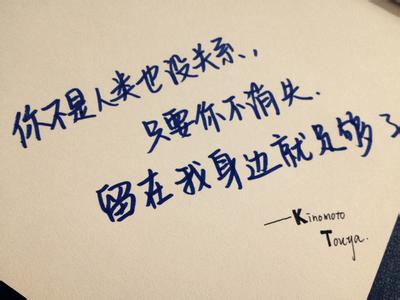 你不是人类也没关系,
只要你不消失.
留在我身边就足够了
——Kinomoto
Touya.